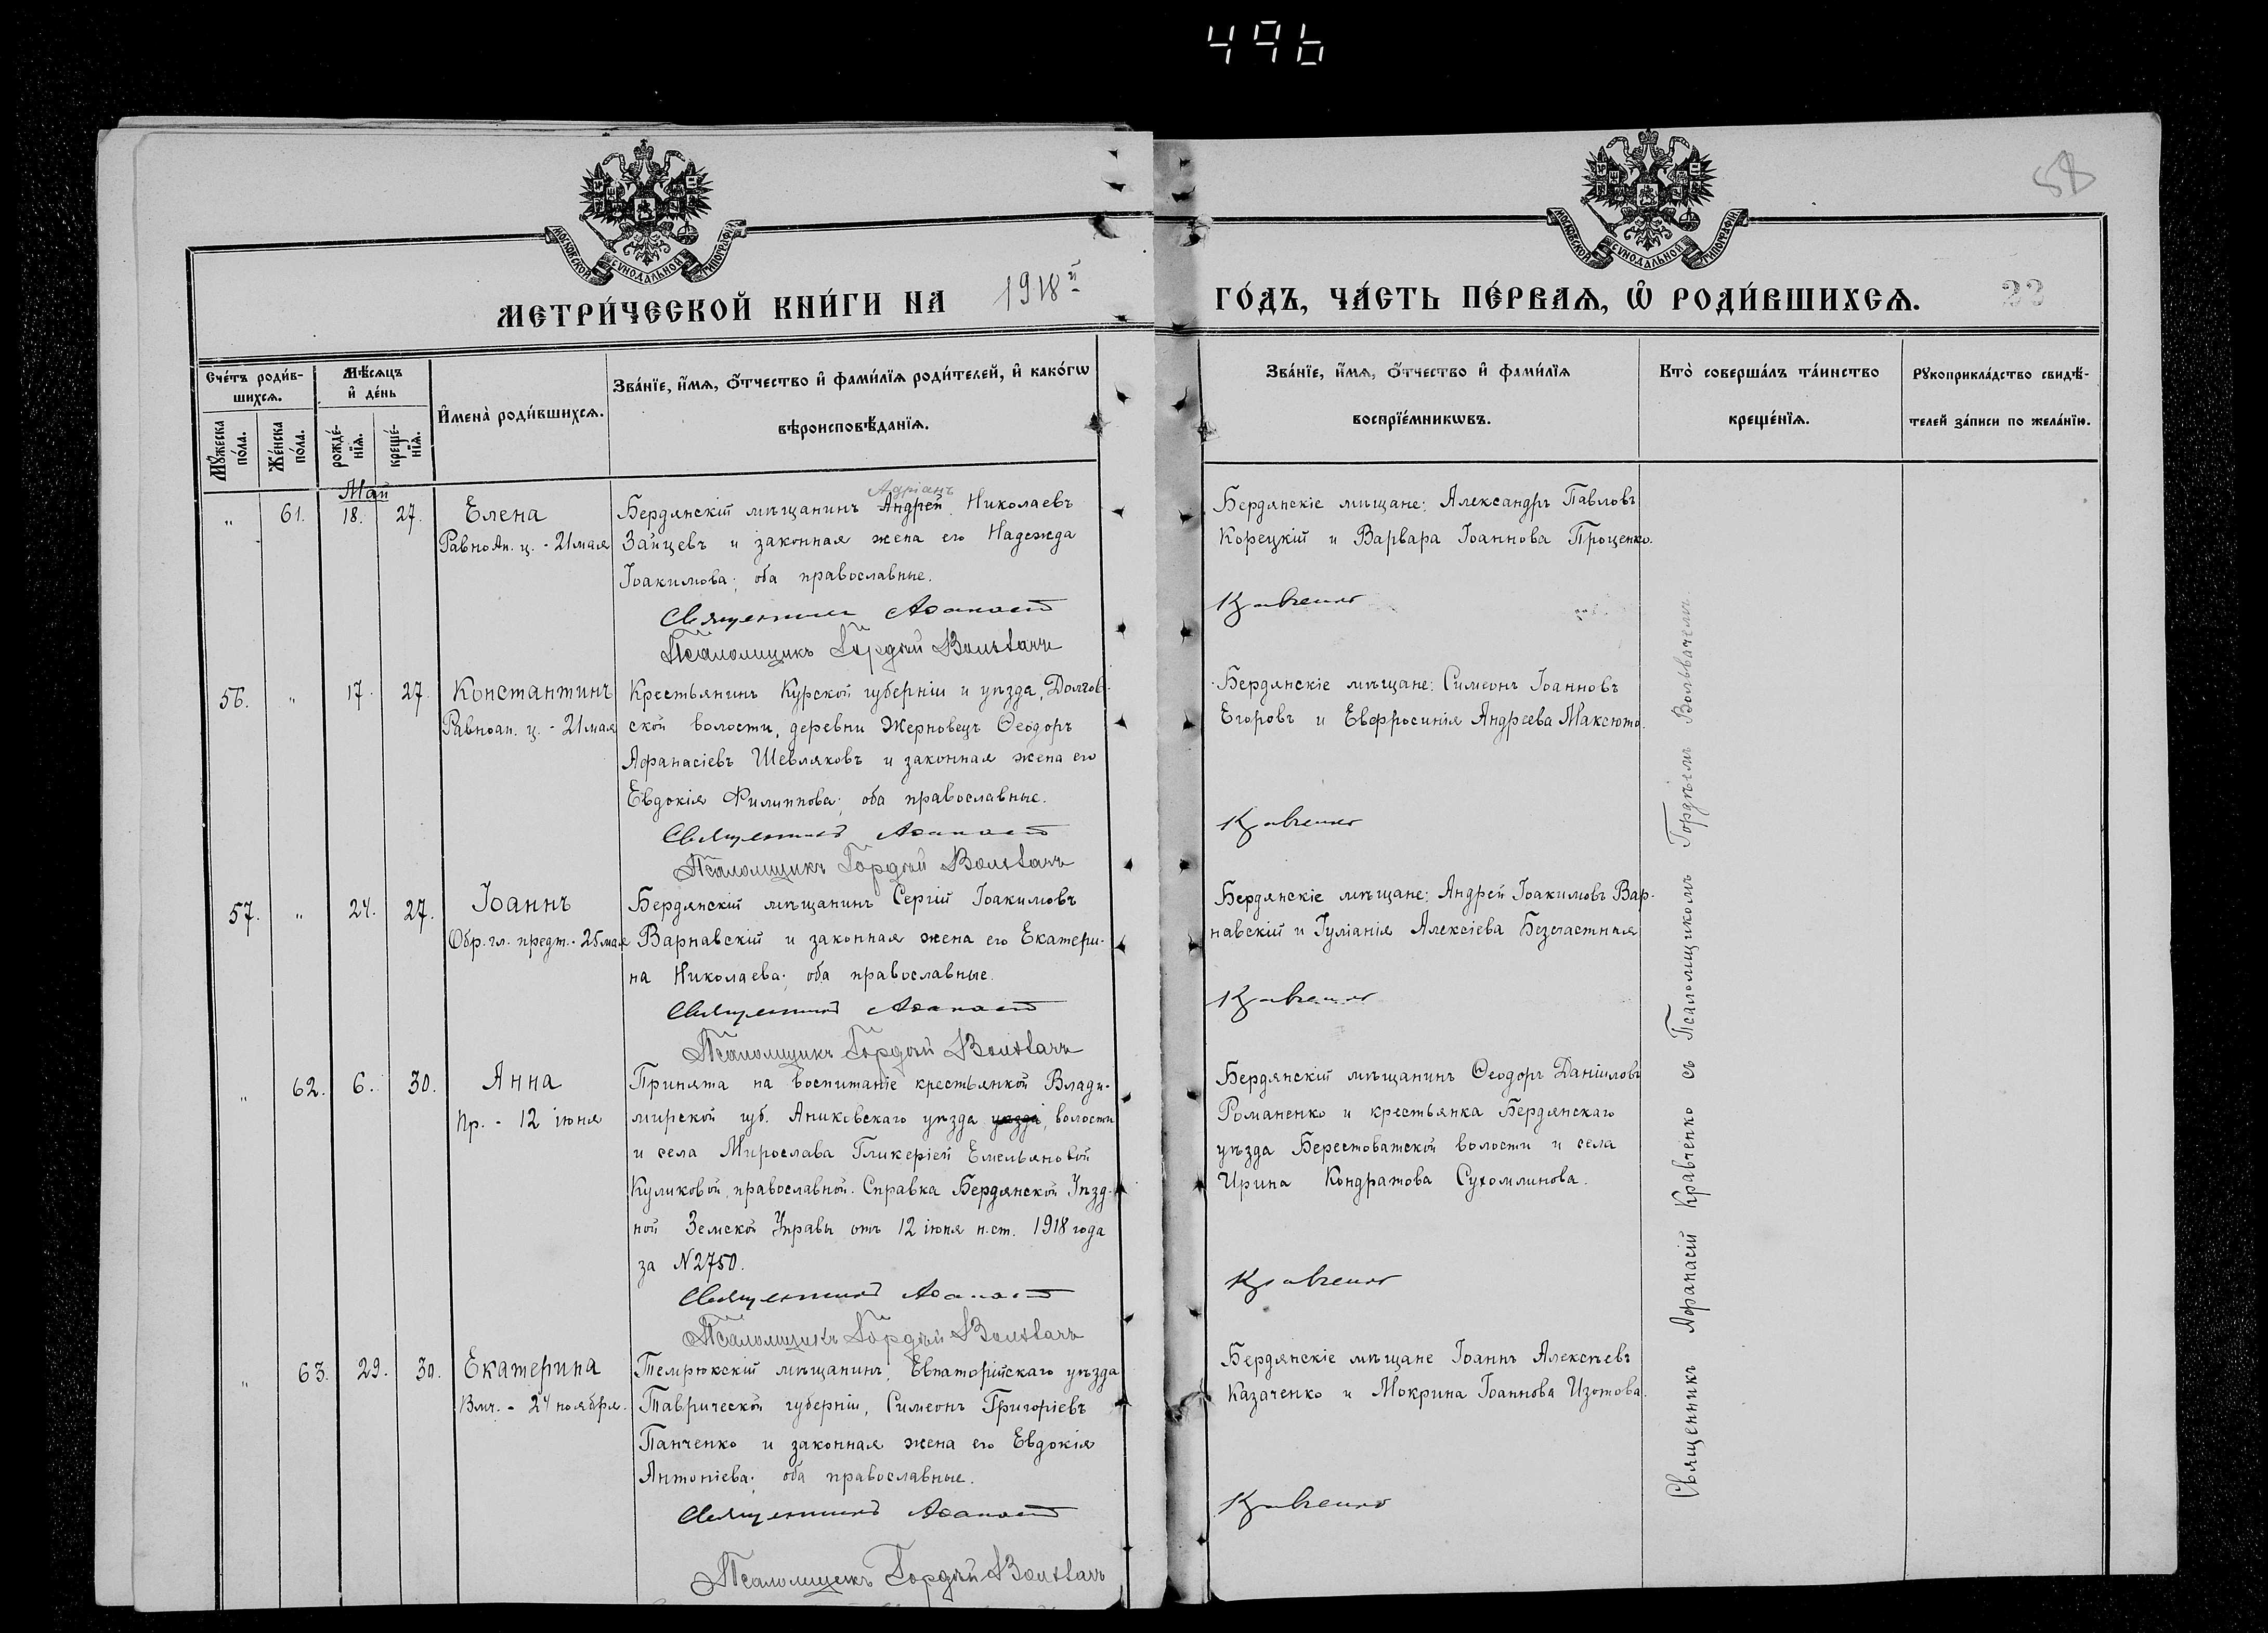 496
58
МОСКОВСКОЙ СѴНОДАЛЬНОЙ ТИПОГРАФІИ
МОСКОВСКОЙ СѴНОДАЛЬНОЙ ТИПОГРАФІИ
МЕТРИ́ЧЕСКОЙ КНИ́ГИ НА 1918й
ГО́ДЪ, ЧА́СТЬ ПЕ́РВАѦ, Ѽ РОДИ́ВШИХСѦ. 23
Сче́тъ роди́в-
шихсѧ.
Мꙋ́жеска
по́ла.
Же́нска
по́ла.
Мѣ́сѧцъ
и҆ де́нь
рожде́-
нїѧ.
креще́-
нїѧ.
И҆мена̀ роди́вшихсѧ.
Зва́нїе, и҆́мѧ, ѻ҆́тчество и҆ фами́лїѧ роди́телей, и҆ како́гѡ
вѣроисповѣ́данїѧ.
Зва́нїе, и҆́мѧ, ѻ҆́тчество и҆ фами́лїѧ
воспрїе́мникѡвъ.
Кто̀ соверша́лъ та́инство
креще́нїѧ.
Рꙋкоприкла́дство свидѣ́-
телей за́писи по жела́нїю.
Май
„ 61. 18. 27. Елена
РавноАп. ц. - 21 мая
Адріанъ
Бердянскій мѣщанинъ Андрей Николаевъ
Зайцевъ и законная жена его Надежда
Іоакимова; оба православные.
Священникъ Аѳанасій
Псаломщикъ Гордѣй
Бердянскіе мѣщане: Александръ Павловъ
Корецкій и Варвара Іоаннова Проценко.
Кравченко
56. „ 17. 27. Константинъ
Равноап. ц. - 21 мая
Крестьянинъ Курской губерніи и уѣзда, Долгов-
ской волости, деревни Жерновецъ Ѳеодоръ
Афанасіевъ Шевляковъ и законная жена его
Евдокія Филиппова; оба православные.
Священникъ Аѳанасій
Псаломщикъ Гордѣй
Бердянскіе мѣщане: Симеонъ Іоанновъ
Егоровъ и Евфросинія Андреева Максюта.
Кравченко
57. „ 24. 27. Іоаннъ
Обр. гл. предт. - 25 мая
Бердянскій мѣщанинъ Сергій Іоакимовъ
Варнавскій и законная жена его Екатери-
на Николаева; оба православные.
Священникъ Аѳанасій
Псаломщикъ Гордѣй
Бердянскіе мѣщане: Андрей Іоакимовъ Вар-
навскій и Іуліанія Алексіева Безчастная
Кравченко
„ 62. 6. 30. Анна
Пр. - 12 іюня
Принята на воспитаніе крестьянкой Влади-
мирской губ. Аниковскаго уѣзда уѣзда, волости
и села Мирослава Гликеріей Емельяновой
Куликовой, православной. Справка Бердянской Уѣзд-
ной Земской Управы отъ 12 іюня н.ст. 1918 года
за N 2750.
Священникъ Аѳанасій
Псаломщикъ Гордѣй
Бердянскій мѣщанинъ Ѳеодоръ Даніиловъ
Романенко и крестьянка Бердянскаго
уѣзда Берестоватской волости и села
Ирина Кондратова Сухомлинова.
Кравченко
„ 63. 29. 30. Екатерина
Вмч. - 24 ноября.
Темрюкскій мѣщанинъ, Евпаторійскаго уѣзда
Таврической губерніи, Симеонъ Григоріевъ
Панченко и законная жена его Евдокія
Антоніева; оба православные.
Священникъ Аѳанасій
Псаломщикъ Гордѣй
Бердянскіе мѣщане Іоаннъ Алексѣевъ
Казаченко и Мокрина Іоаннова Изотова.
Кравченко
Священникъ Афанасій Кравченко съ Псаломщикомъ Гордѣемъ